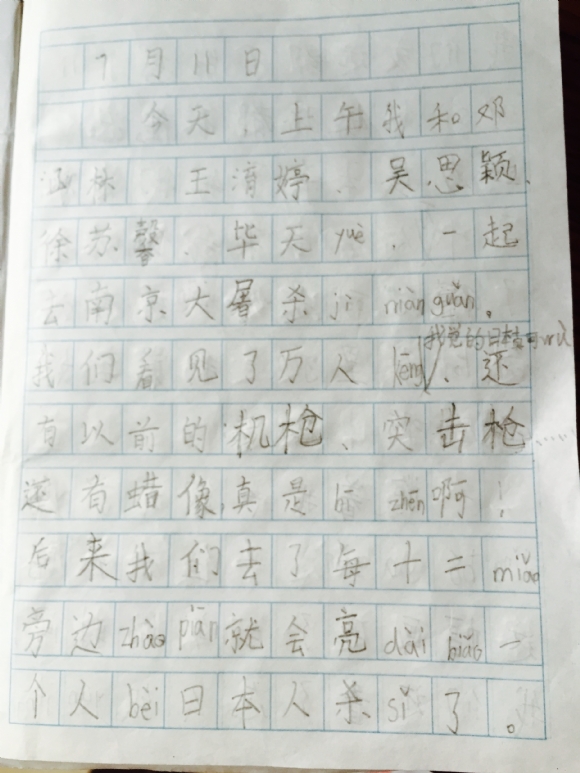 7月11日
今天,上午我和邓
涵林、王淯婷、吴思颖、
徐苏馨、毕天yuè,一起
去南京大屠杀jì niàn guǎn。
我觉的日本
我们看见了万人kēng、还
有以前的机枪、突击枪
还有蜡像,真是bī zhēn啊!
后来我们去了每十二miǎo
旁边zhào piān就会亮dài biǎo一
个人bèi日本人杀sǐ了。